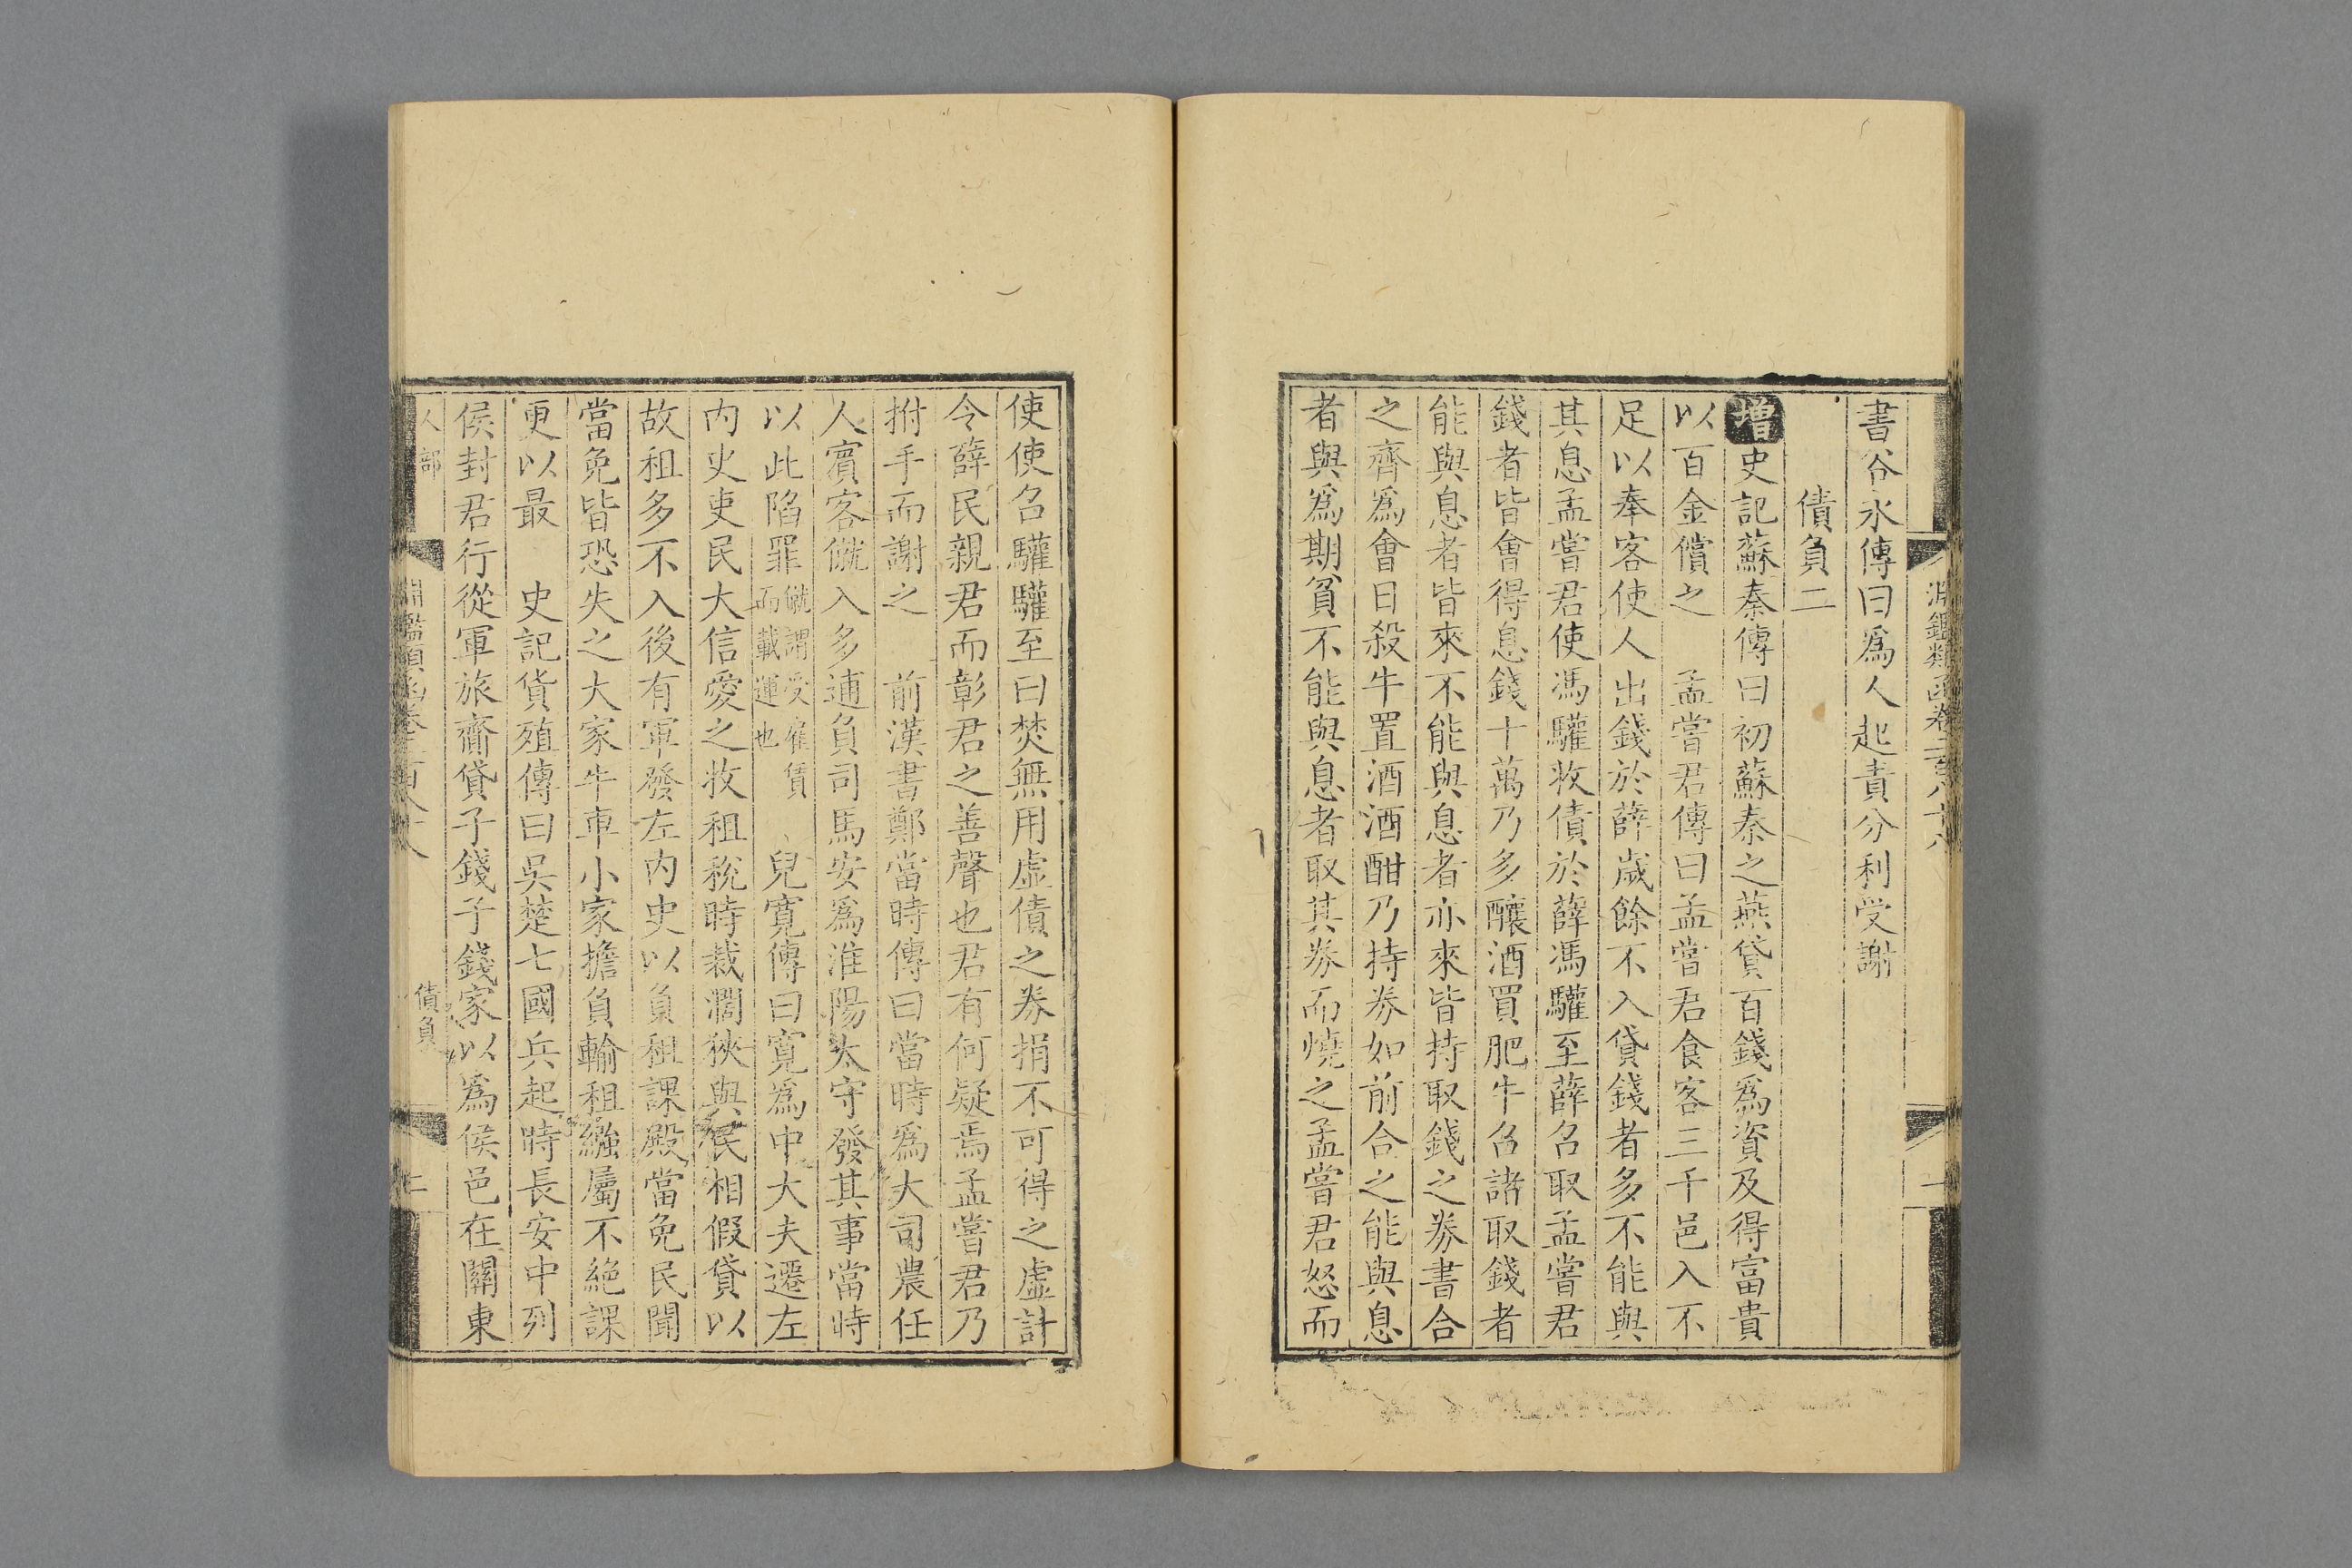 書谷永傳曰爲人起責分利受謝
債負二
增史記蘇秦傳曰初蘇秦之燕貸百錢爲資及得富貴
以百金償之　孟嘗君傳曰孟嘗君食客三千邑入不
足以奉客使人出錢於薛歲餘不入貸錢者多不能與
其息孟嘗君使馮驩收債於薛馮驩至薛召取孟嘗君
錢者皆會得息錢十萬乃多釀酒買肥牛召諸取錢者
能與息者皆來不能與息者亦來皆持取錢之券書合
之齊爲會日殺牛置酒酒酣乃持券如前合之能與息
者與爲期貧不能與息者取其券而燒之孟嘗君怒而
使使召驩驩至曰焚無用虛債之券捐不可得之虛計
令薛民親君而彰君之善聲也君有何疑焉孟嘗君乃
拊手而謝之　前漢書鄭當時傳曰當時爲大司農任
人賓客僦入多逋負司馬安爲淮陽太守發其事當時
以此陷罪僦謂受雇賃而載運也　兒寬傳曰寬爲中大夫遷左
內史吏民大信愛之收租稅時裁濶狹與民相假貸以
故租多不入後有軍發左內史以負租課殿當免民聞
當免皆恐失之大家牛車小家擔負輸租繈屬不絕課
更以最　史記貨殖傳曰吳楚七國兵起時長安中列
侯封君行從軍旅齎貸子錢子錢家以爲侯邑在關東
人部
債負
二